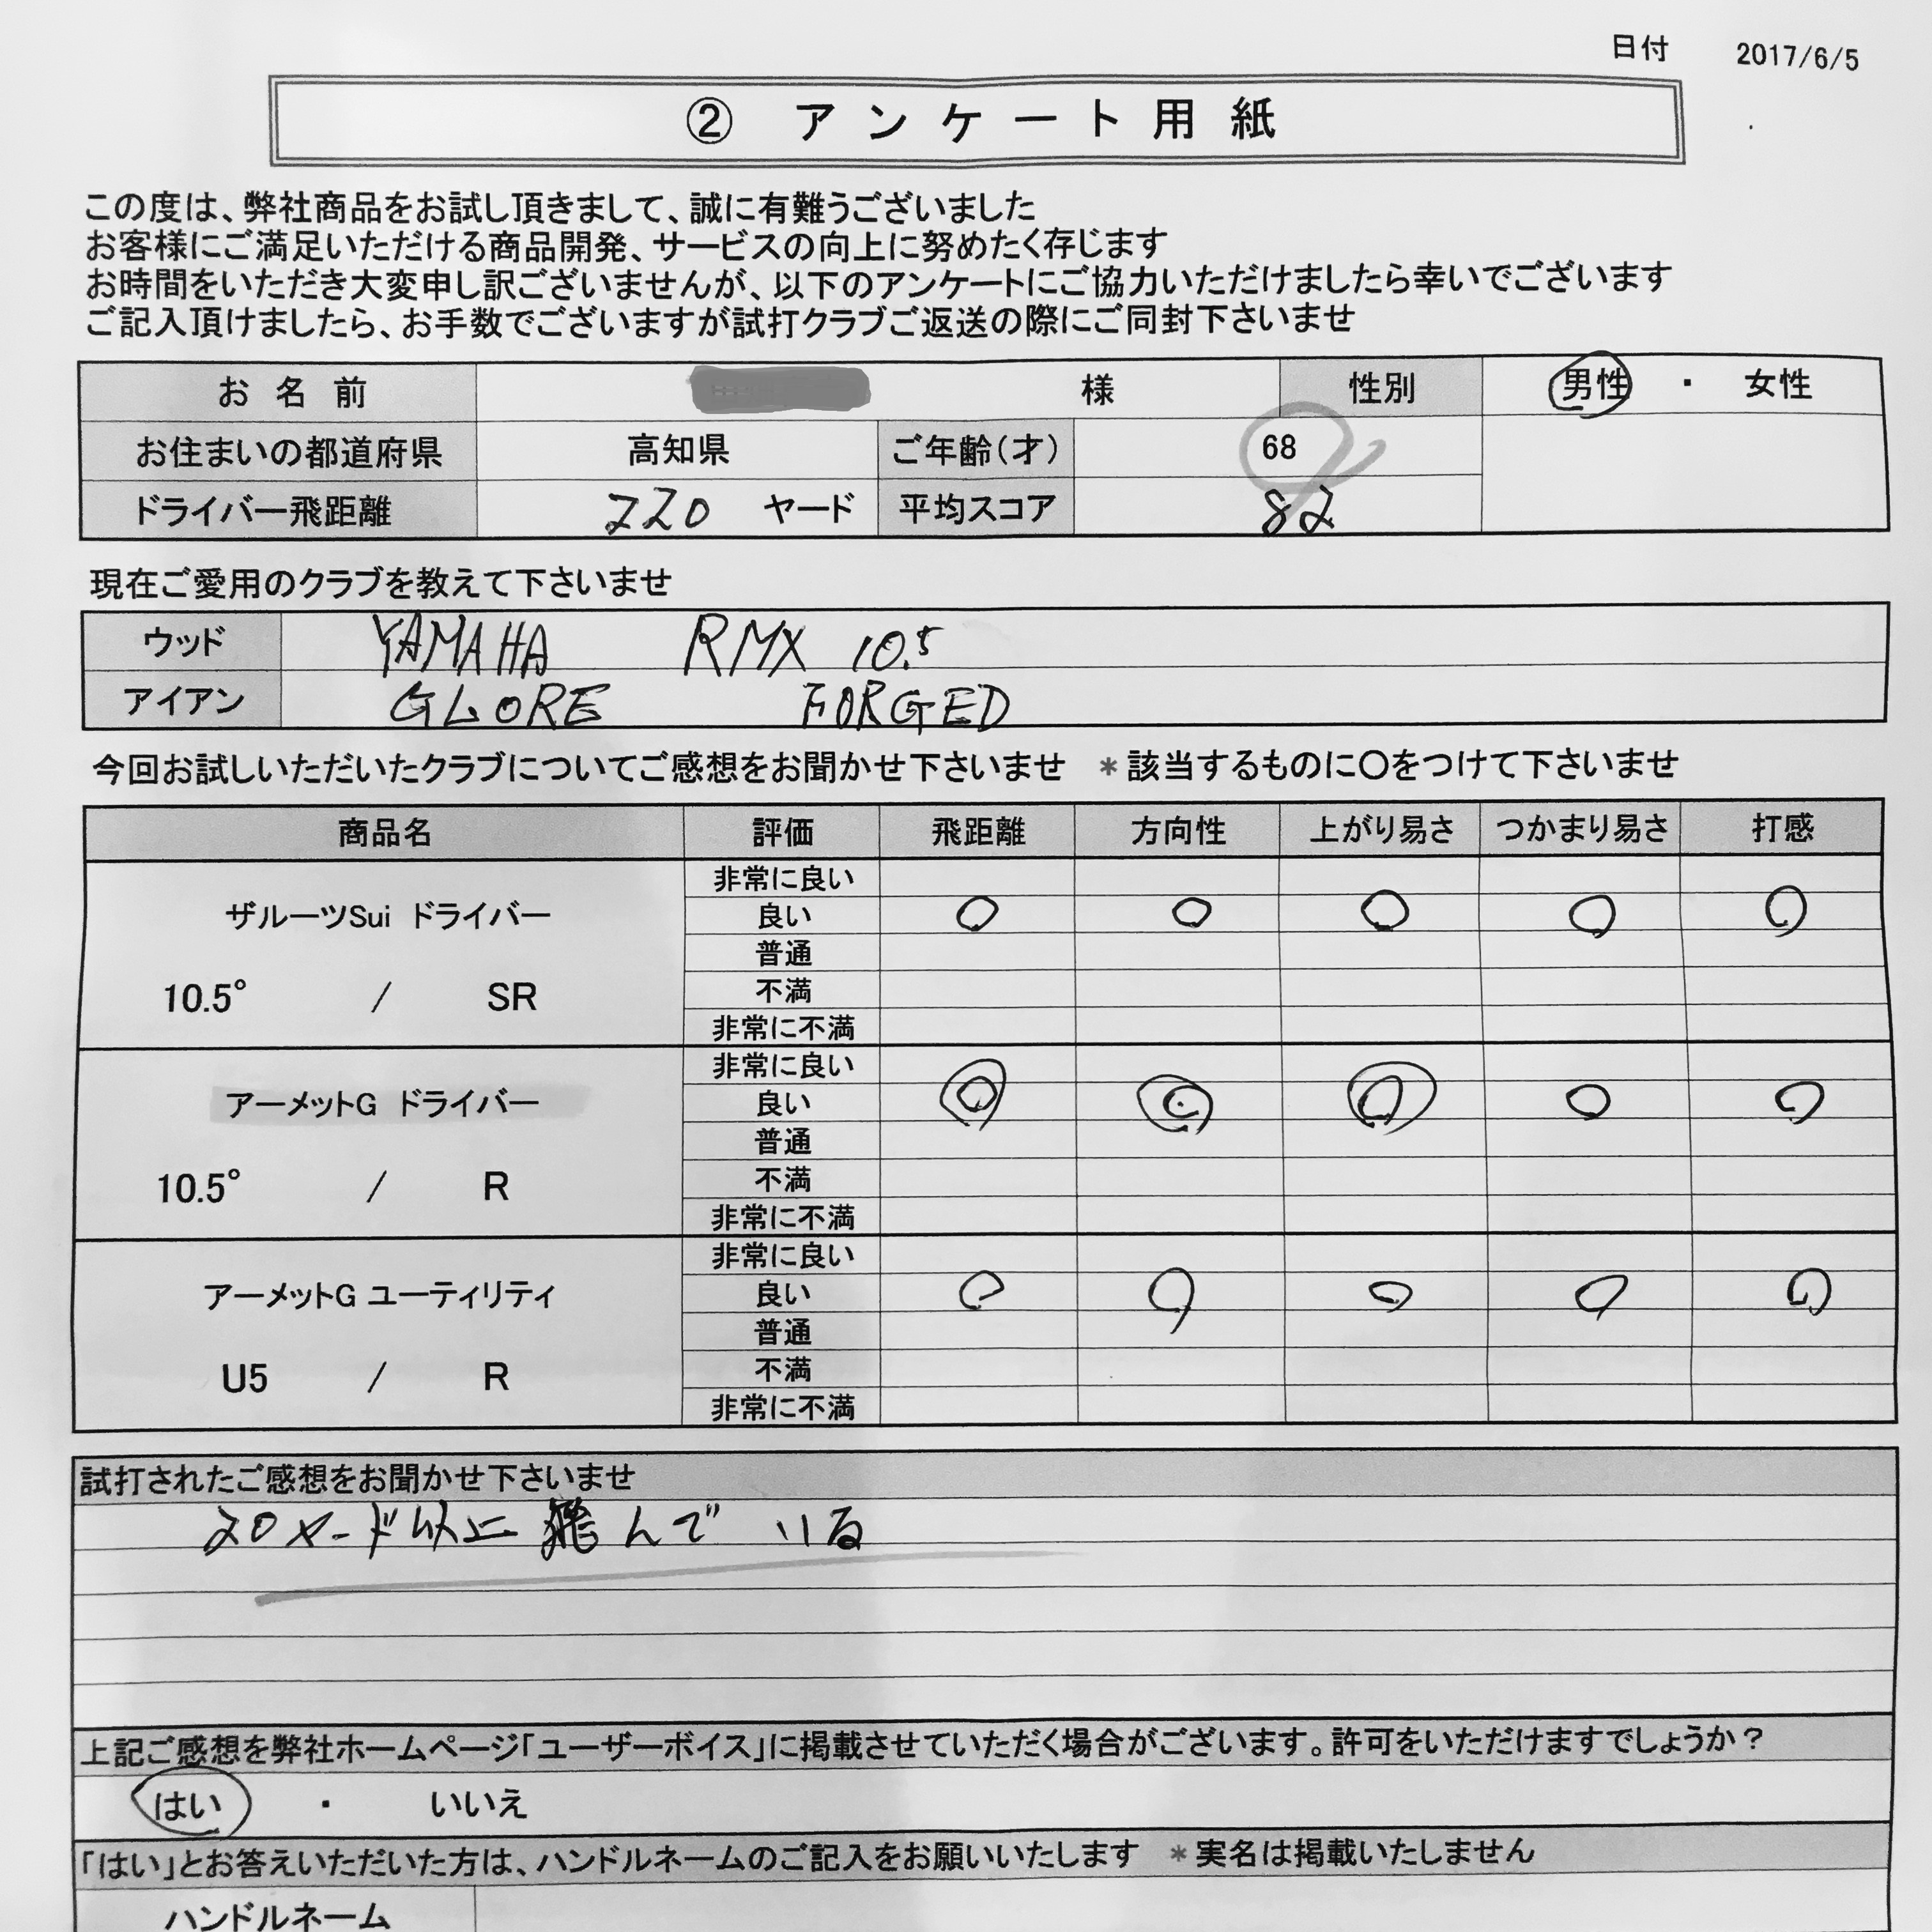 日付 2017/6/5
② アンケート用紙
この度は、弊社商品をお試し頂きまして、誠に有難うございました
お客様にご満足いただける商品開発、サービスの向上に努めたく存じます
お時間をいただき大変申し訳ございませんが、以下のアンケートにご協力いただけましたら幸いでございます
ご記入頂けましたら、お手数でございますが試打クラブご返送の際にご同封下さいませ
お名前 様 性別 男性 ・ 女性
お住まいの都道府県 高知県 ご年齢(才) 68
ドライバー飛距離 220 ヤード 平均スコア 82
現在ご愛用のクラブを教えて下さいませ
ウッド YAMAHA RMX 10.5
アイアン GLORE FORGED
今回お試しいただいたクラブについてご感想をお聞かせ下さいませ *該当するものに〇をつけて下さいませ
商品名 評価 飛距離 方向性 上がり易さ つかまり易さ 打感
非常に良い
ザルーツSui ドライバー 良い 〇 〇 〇 〇 〇
普通
10.5° / SR 不満
非常に不満
非常に良い
アーメットG ドライバー 良い ◎ ◎ ◎ 〇 〇
普通
10.5° / R 不満
非常に不満
非常に良い
アーメットG ユーティリティ 良い 〇 〇 〇 〇 〇
普通
U5 / R 不満
非常に不満
試打されたご感想をお聞かせ下さいませ
20ヤード以上飛んでいる
上記ご感想を弊社ホームページ「ユーザーボイス」に掲載させていただく場合がございます。許可をいただけますでしょうか?
はい ・ いいえ
「はい」とお答えいただいた方は、ハンドルネームのご記入をお願いいたします *実名は掲載いたしません
ハンドルネーム